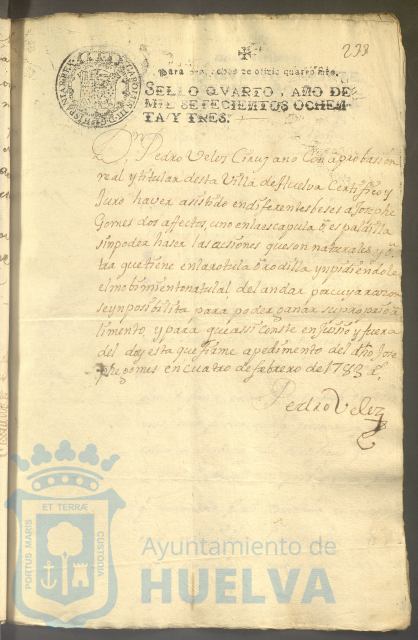 238
Para despachos de oficio quatro mrs.
SELLO QVARTO, AÑO DE
MIL SETECIENTOS OCHEN-
TA Y TRES.
Dn. Pedro Veles Cirujano Con aprobasion
real y titular desta Villa de Huelva Certifico y
Juro haver asistido en diferentes beses a Josephe
Gomes dos afectos, uno en la escapula o espaldilla
sin poder haser las acsiones que son naturales y o
tra que tiene en la rotula o rodilla ynpidiendole
el mobimiento natulal del andar pa cuya rason
se ynposibilita para poder ganar su propio a
limento, y para que asi conste en juisio y fuera
del doy esta que firme a pedimento del dho Jose
phe gomes en cuatro de febrero de 1783
Pedro Velez
PORTUS MARIS
ET TERRÆ
CUSTODIA
Ayuntamiento de
HUELVA